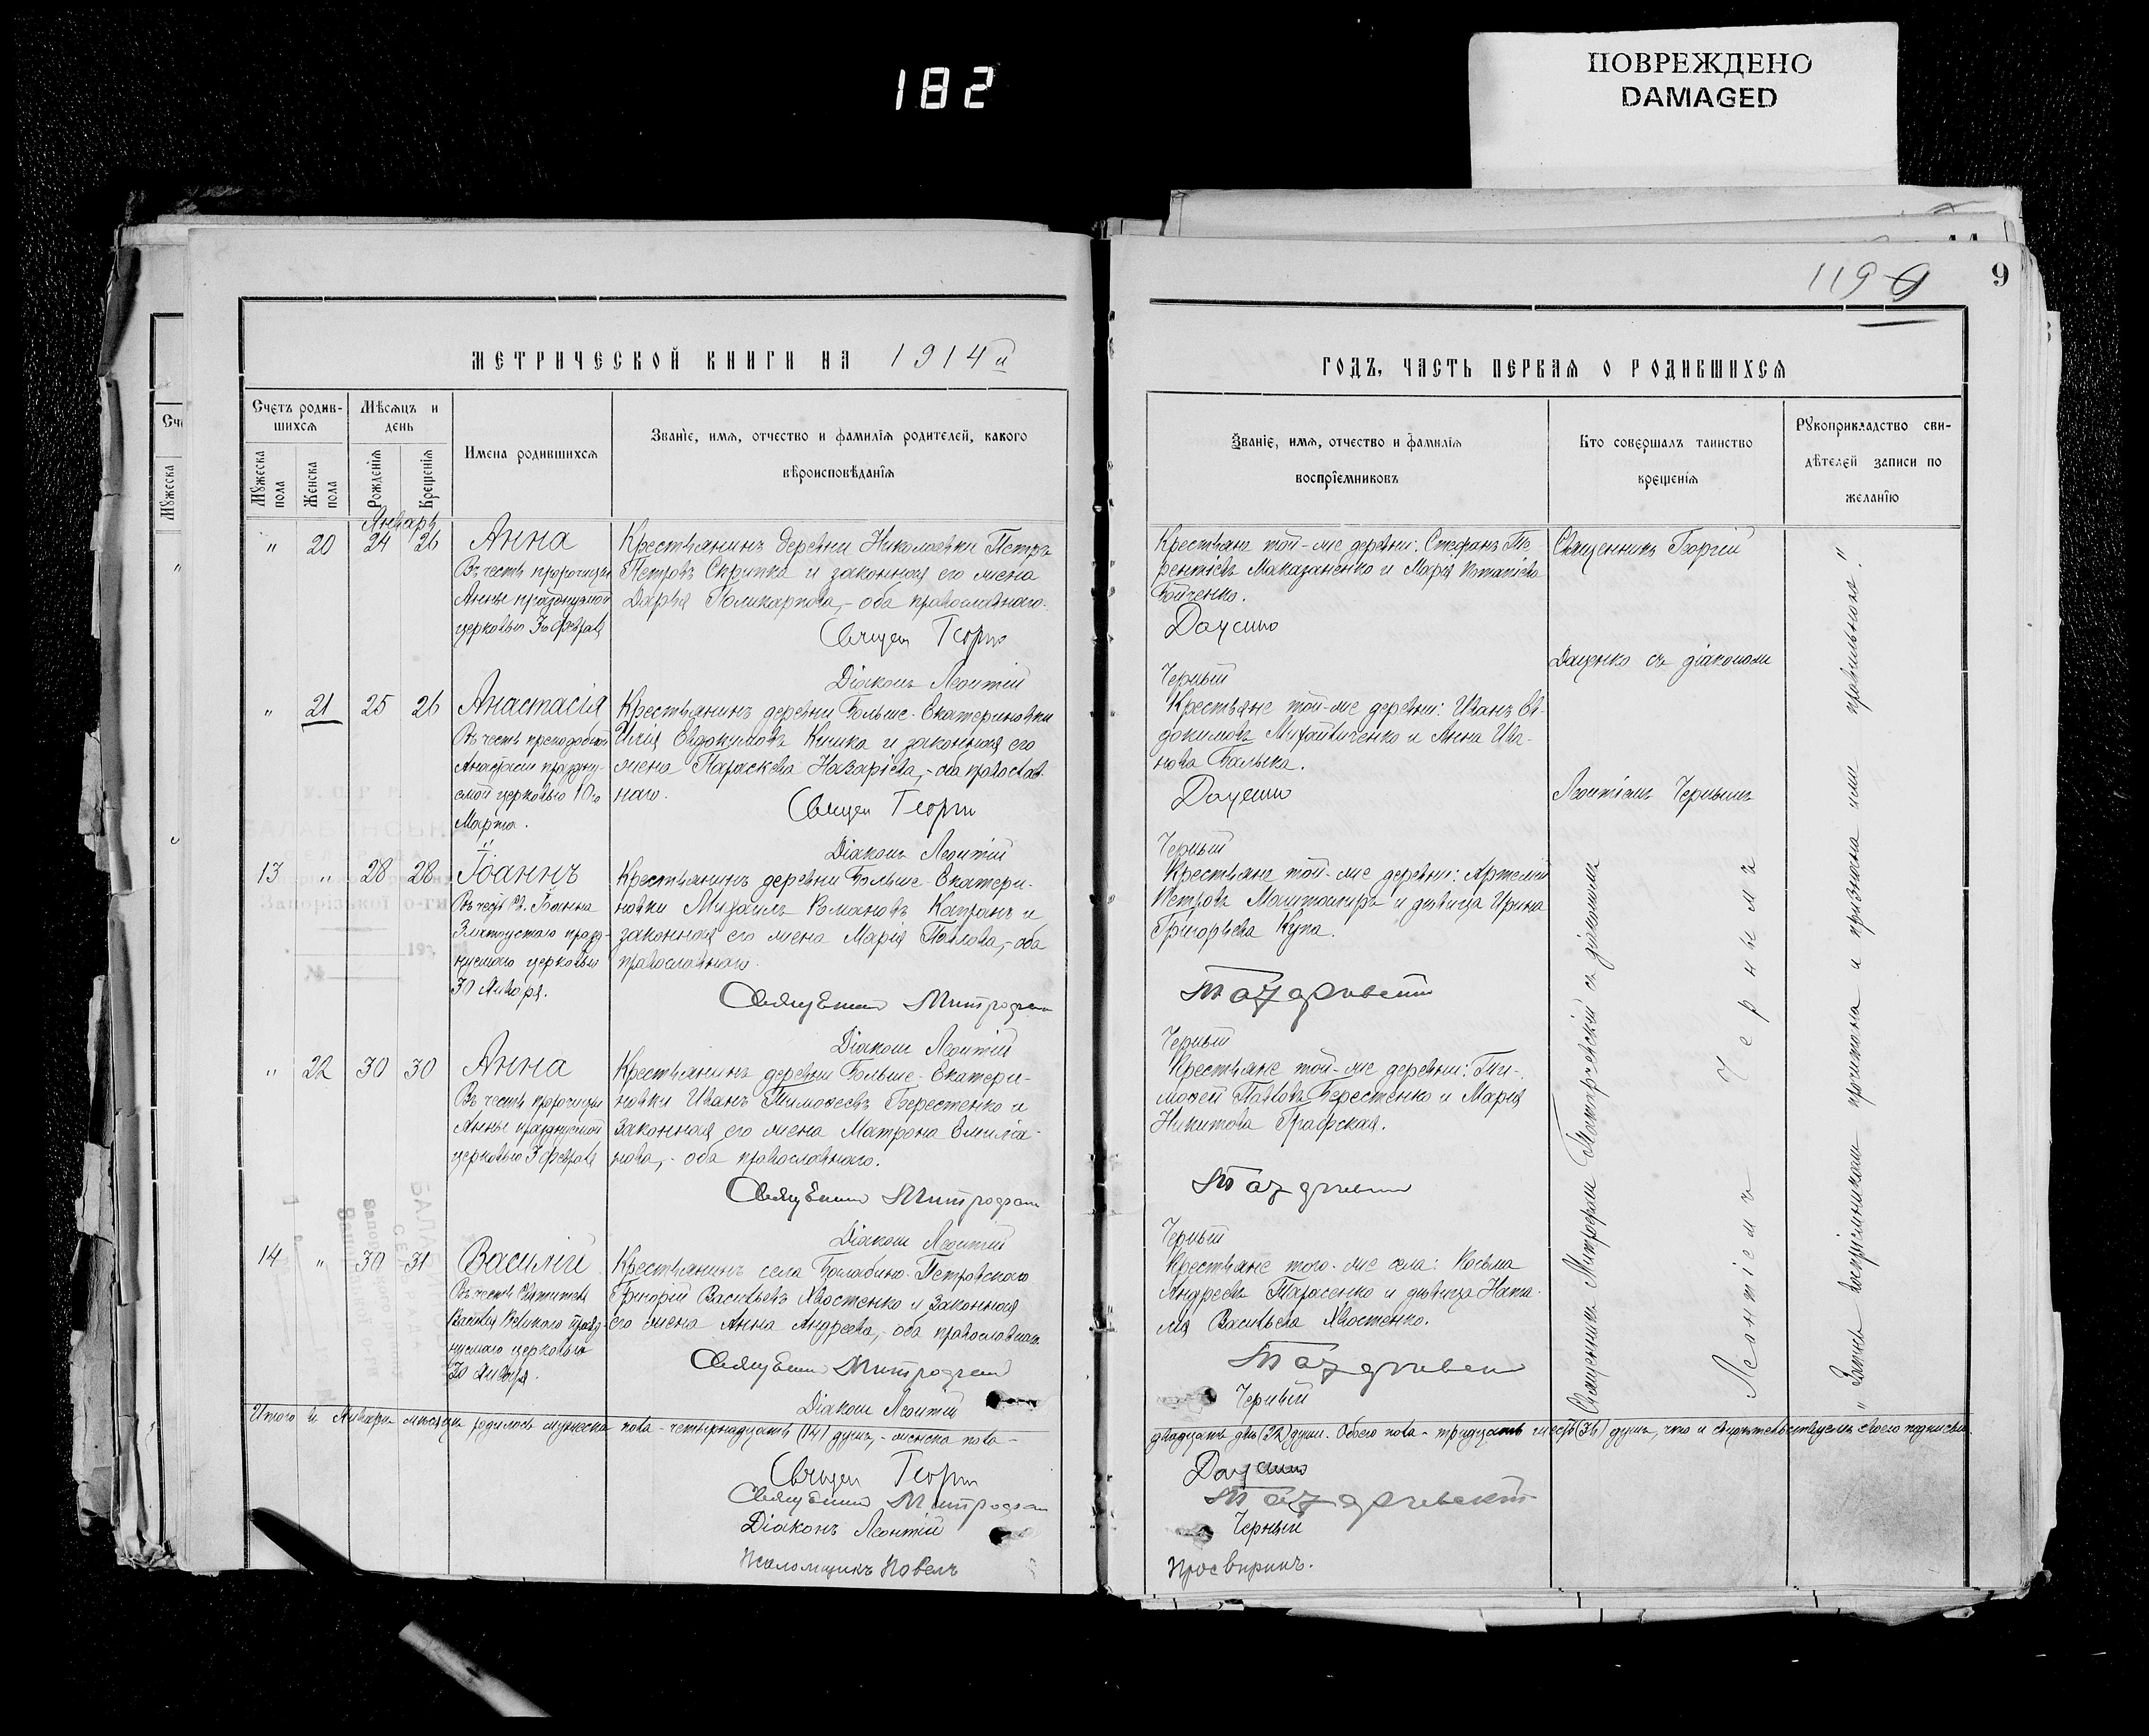 182
ПОВРЕЖДЕНО
DAMAGED
119
9
МЕТРИЧЕСКОЙ КНИГИ НА 1914й
Счетъ родив-
шихся
Мѣсяцъ и
день
Мужеска
пола
Женска
пола
Рожденія
Крещенія
Имена родившихся
Званіе, имя, отчество и фамилія родителей, какого
вѣроисповѣданія
Январь
" 20 24 26 Анна
Въ честь пророчицы
Анны празднуемой
церковью 3го февраля
Крестьянинъ деревни Николаевки Петръ
Петровъ Скрипка и законная его жена
Дарья Поликарпова,- оба православнаго.
Священ Георги
Діаконъ Леонтій
" 21 25 26 Анастасія
Въ честь преподобной
Анастасіи праздну-
емой церковью 10го
Марта.
Крестьянинъ деревни Больше-Екатериновки
Илія Евдокимовъ Кишка и законная его
жена Параскева Назаріева,- оба православ-
наго.
Священ Георги
Діаконъ Леонтій
13 " 28 28 Іоаннъ
Въ честь Св. Іоанна
Златоустаго празд-
нуемаго церковью
30 Января.
Крестьянинъ деревни Больше-Екатери-
новки Михаилъ Романовъ Капранъ и
законная его жена Марія Павлова,- оба
православнаго.
Священникъ Митрофанъ
Діаконъ Леонтій
" 22 30 30 Анна
Въ честь пророчицы
Анны празднуемой
церковью 3 февраля
Крестьянинъ деревни Больше-Екатери-
новки Иванъ Тимофеевъ Берестенко и
законная его жена Матрона Емиліа-
нова,- оба православнаго.
Священникъ Митрофанъ
Діаконъ Леонтій
14 " 30 31 Василій
Въ честь Святителя
Василія Великаго празд-
нуемаго церковью
30 Января.
Крестьянинъ села Балабино-Петровскаго
Григорій Васильевъ Хвостенко и законная
его жена Анна Андреева,- оба православнаго.
Священникъ Митрофанъ
Діаконъ Леонтій
Итого въ Январѣ мѣсяцѣ родилось мужеска пола - четырнадцать (14) душъ,- женска пола -
Священ Георги
Священникъ Митрофанъ
Діаконъ Леонтій
Псаломщикъ Павелъ
ГОДЪ, ЧАСТЬ ПЕРВАЯ О РОДИВШИХСЯ
Званіе, имя, отчество и фамилія
воспріемниковъ
Кто совершалъ таинство
крещенія
Рукоприкладство сви-
дѣтелей записи по
желанію
Крестьяне той-же деревни: Стефанъ Те-
рентіевъ Маказаненко и Марія
Бойченко.
Даценко
Черный
Крестьяне той-же деревни: Иванъ Ев-
докимовъ и Анна Ива-
нова Балыка.
Даценко
Черный
Крестьяне той-же деревни: Артемій
Петровъ и дѣвица Ирина
Григорьева Купа.
Татаревскій
Черный
Крестьяне той-же деревни: Ти-
мофей Павловъ Берестенко и Марія
Никитова Графская.
Татаревскій
Черный
Крестьяне того-же села: Косьма
Андреевъ Тарасенко и дѣвица Ната-
лія Васильева Хвостенко.
Татаревскій
Черный
двадцать двѣ (22) души. Обоего пола - тридцать шесть (36) душъ, что и свидѣтельствуемъ своею подписью.
Даценко
Татаревскій
Черный
Просвиринъ.
Священникъ Георгій
Даценко съ діакономъ
Леонтіемъ Чернымъ
Священникъ Митрофанъ Татаревскій съ діакономъ
Леонтіемъ Чернымъ
" Запись воспріемникамъ прочитана и признана ими правильною."